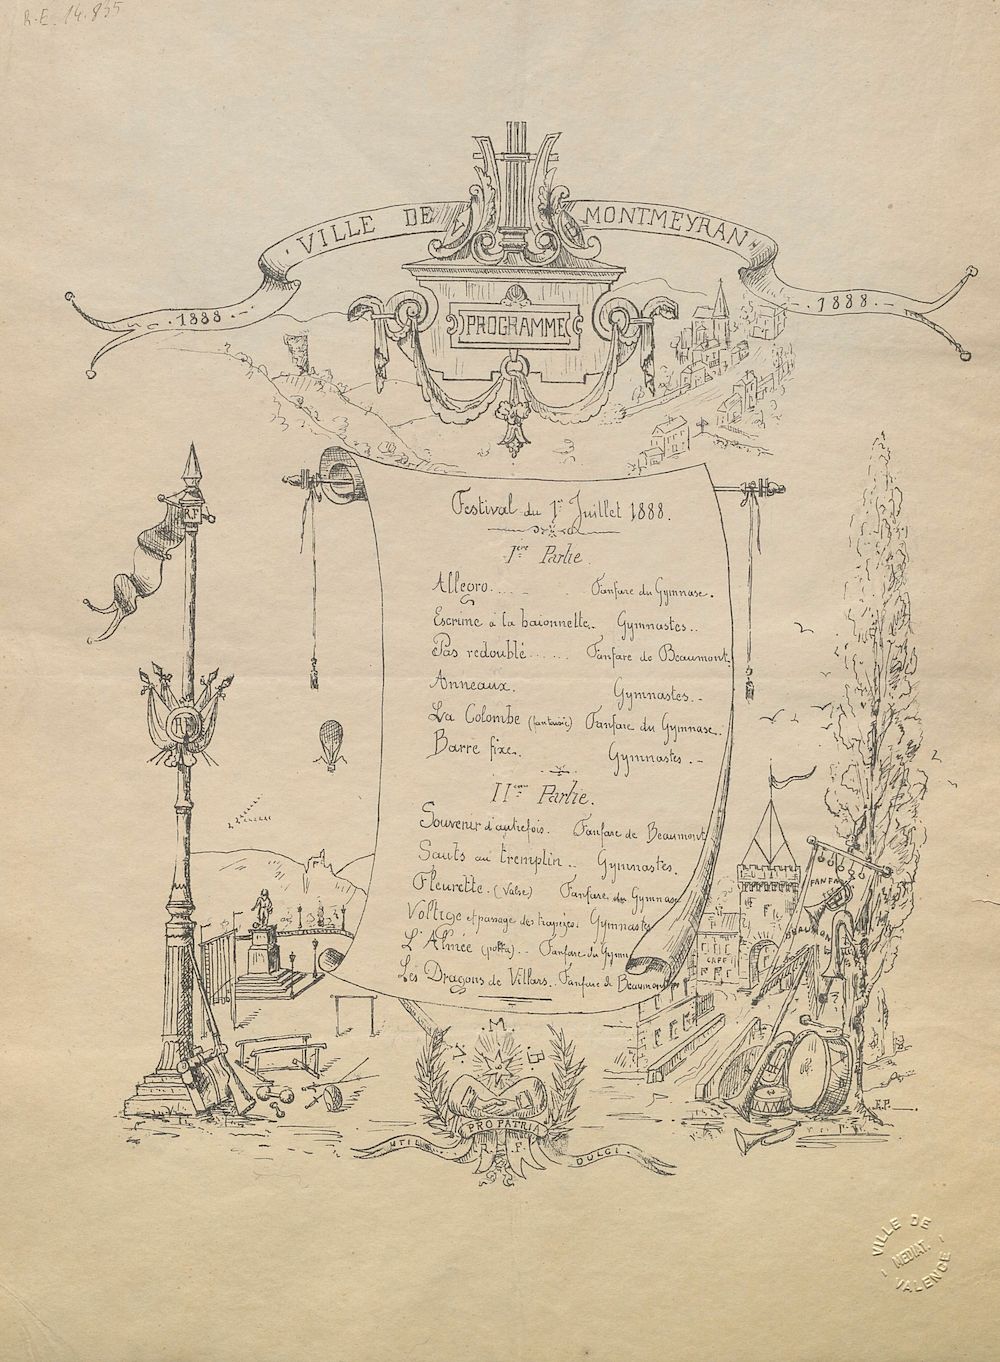 R.E. 14.855
VILLE DE MONTMEYRAN
1888. 1888.
PROGRAMME
Festival du 1er Juillet 1888.
Ière Partie.
Allegro..... Fanfare du Gymnase.
Escrime à la baïonnette.. Gymnastes..
Pas redoublé...... Fanfare de Beaumont.
Anneaux. Gymnastes.-
La Colombe (fantaisie) Fanfare du Gymnase..
Barre fixe. Gymnastes.-
IIème Partie.
Souvenir d'autrefois. Fanfare de Beaumont
Sauts au tremplin.. Gymnastes.
Fleurette. (Valse) Fanfare du Gymnase
Voltige et passage des trapèzes. Gymnastes
L'Almée (polka)... Fanfare du Gymn
Les Dragons de Villars.. Fanfare de Beaumont
RF
RF
CAFÉ
FANFA
BEAUMON
V. M. B
PRO PATRIA
R. F.
UTILE DULCI
E.P.
VILLE DE
MEDIAT.
VALENCE